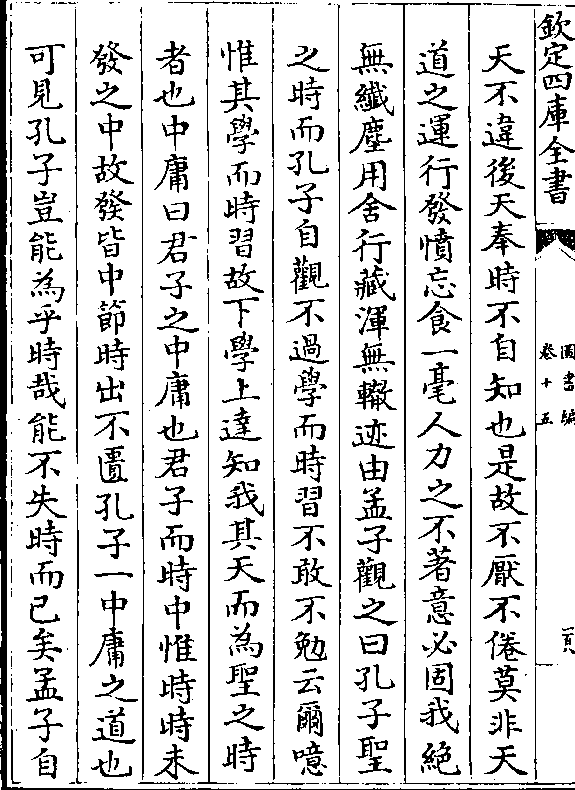 欽定四庫全書
圖書編
卷十五
頁
天不違後天奉時不自知也是故不厭不倦莫非天
道之運行發憤忘食一毫人力之不著意必固我絶
無纎塵用舍行藏渾無轍迹由孟子觀之曰孔子聖
之時而孔子自觀不過學而時習不敢不勉云爾噫
惟其學而時習故下學上達知我其天而為聖之時
者也中庸曰君子之中庸也君子而時中惟時時未
發之中故發皆中節時出不匱孔子一中庸之道也
可見孔子豈能為乎時哉能不失時而已矣孟子自